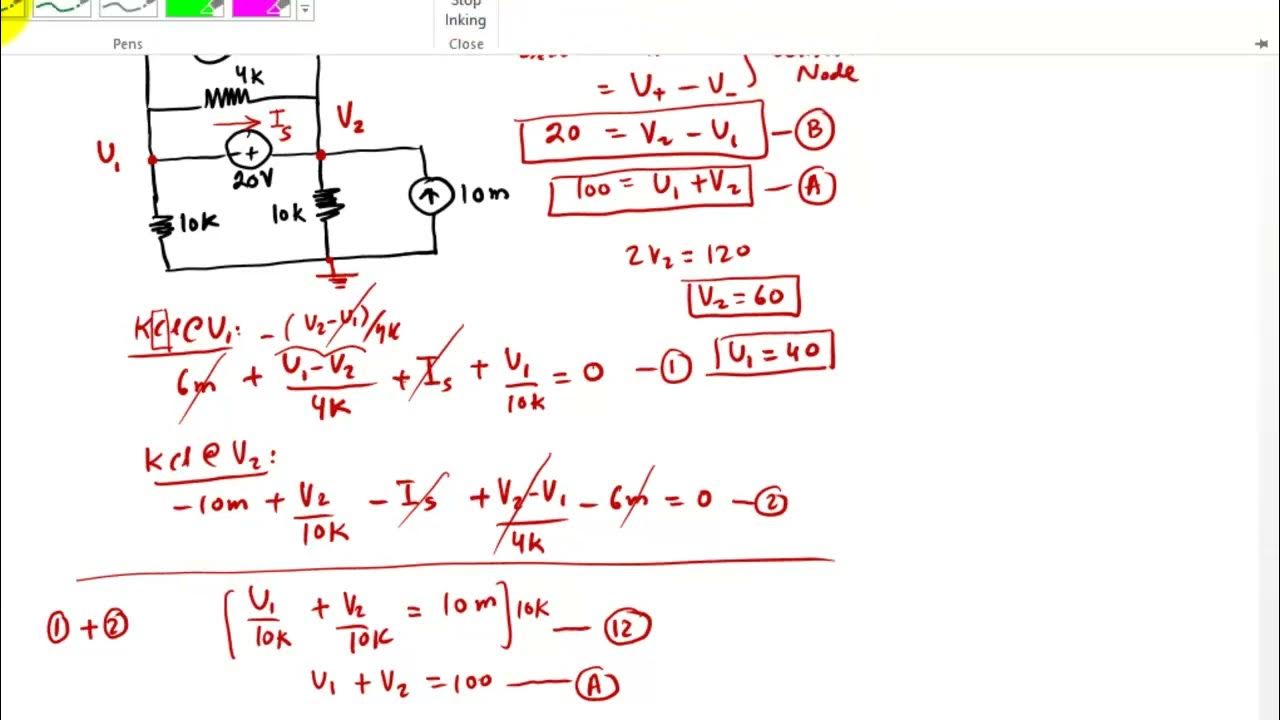 Stop
Inking
Pens
Close
4K
Is
V2
V1
- +
20V
10K
10K
10m
Node
= V+ - V-
20 = V2 - V1 — B
100 = V1 + V2 — A
2V2 = 120
V2 = 60
V1 = 40
Kcl@V1: -(V2-V1)/4K
6m + V1 - V2/4K + Is + V1/10K = 0 — 1
Kcl @ V2:
-10m + V2/10K - Is + V2 - V1/4K - 6m = 0 — 2
1 + 2 [V1/10K + V2/10K = 10m] 10K — 12
V1 + V2 = 100 — A